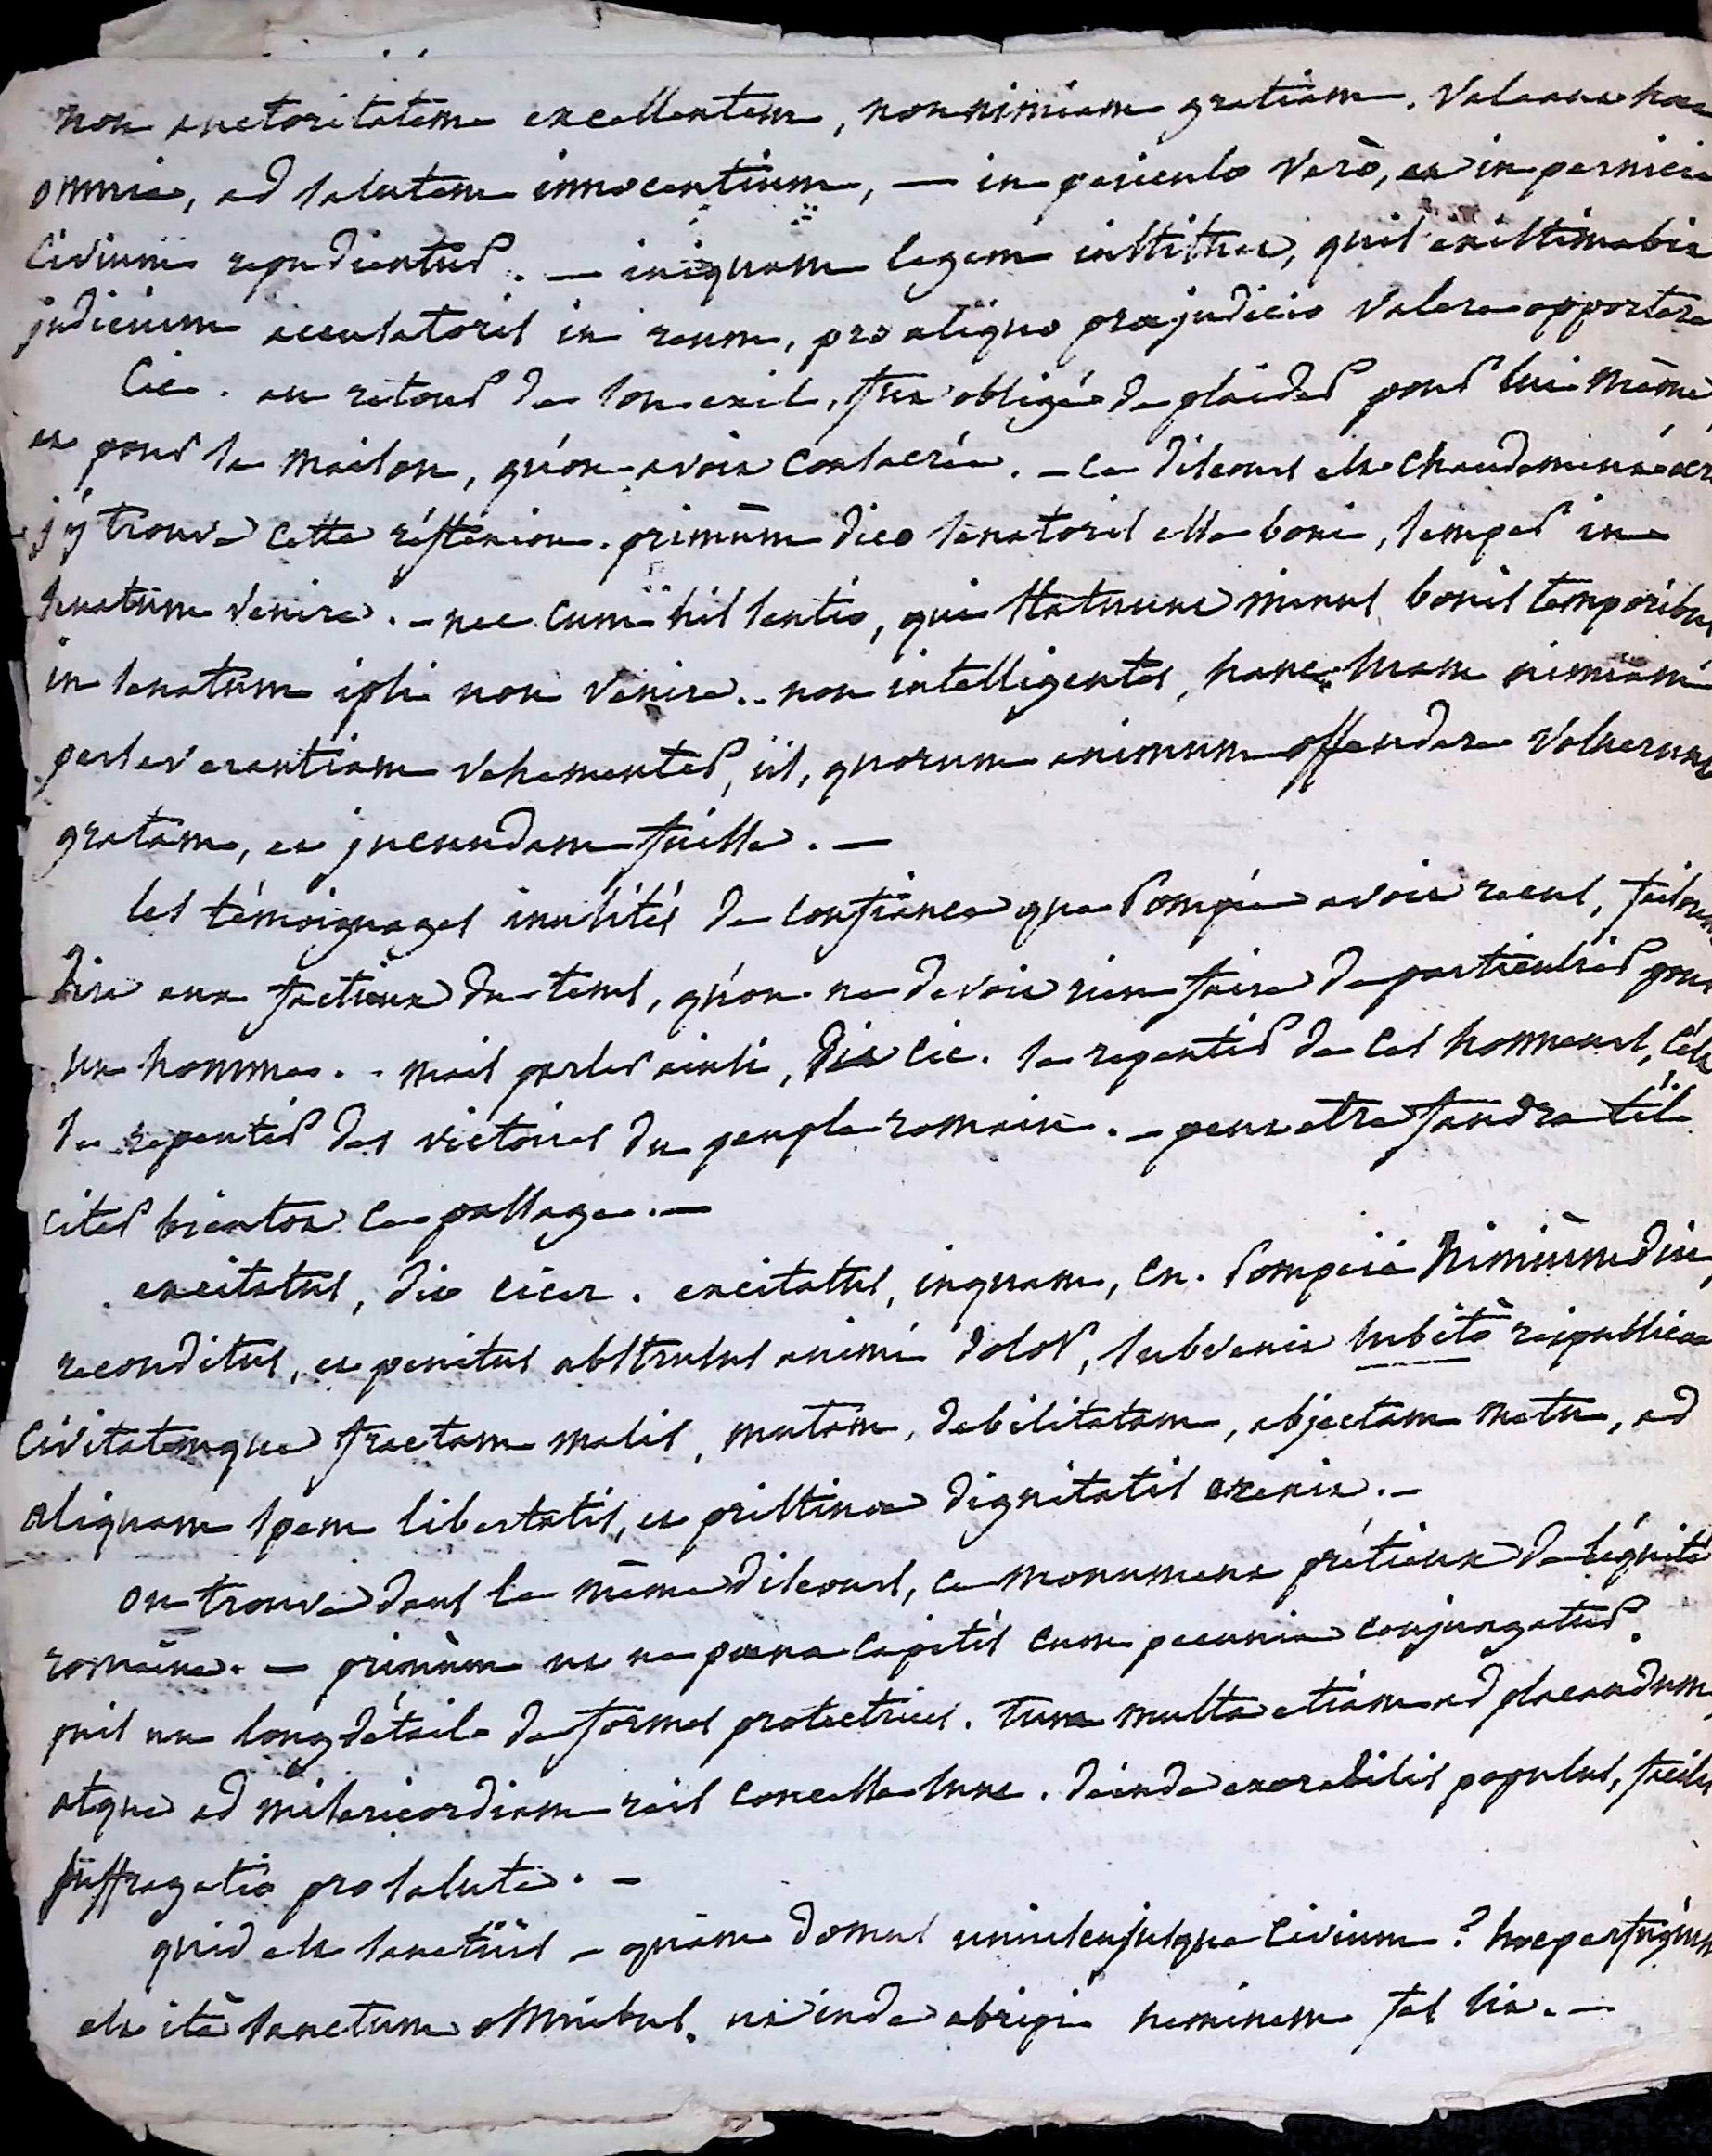 non auctoritatem excellentem, non nimiam gratiam. Valeant haec
omnia, ad salutem innocentium, — in periculo verò, et in pernicie
civium repudientur. — iniquam legem instituet, quis existimabit
judicium accusatoris in reum, pro aliquo praejudicio valere opportere
Cic. au retour de son exil, fut obligé de plaider pour lui même,
et pour sa maison, qu'on avoit consacrée. — ce discours est chaudement écrit
j'y trouve cette réflexion. primùm dico senatoris esse boni, semper in
senatum venire. — nec cum his sentio, qui statuunt minus bonis temporibus
in senatum ipsi non venire.. non intelligentes, hanc suam nimiam
perseverantiam vehementer, iis, quorum animum offendere voluerunt
gratam, et jucundam fuisse. —
les témoignages inusités de confiance que Pompée avoit reçus,
dire aux factieux du tems, qu'on ne devoit rien faire de particulier pour
un homme. . mais parler ainsi, dit cic. se repentir de ces honneurs, c'est
se repentir des victoires du peuple romain. — peut etre faudra t'il
citer bientot ce passage. —
excitatus, dit cicer. excitatus, inquam, Cn. Pompeii nimiùm diu
reconditus, et penitus abstrusus animi dolor, subvenit subitò reipublicae
civitatemque fractam malis, mutam, debilitatam, abjectam metu, ad
aliquam spem libertatis, et pristinae dignitatis erexit. —
on trouve dans le même discours, ce monument prétieux de l'équité
romaine. — primùm ut ne poena capitis cum pecunia conjungatur.
puis un long détail de formes protectrices. tum multa etiam ad placandum,
atque ad misericordiam reis concessa sunt. deinde exorabilis populus, facilis
suffragatio pro salute. —
quid est sanctiùs — quàm domus uniuscujusque civium? hoc perfugium
est ità sanctum omnibus. ut inde abripi neminem fas sit. —